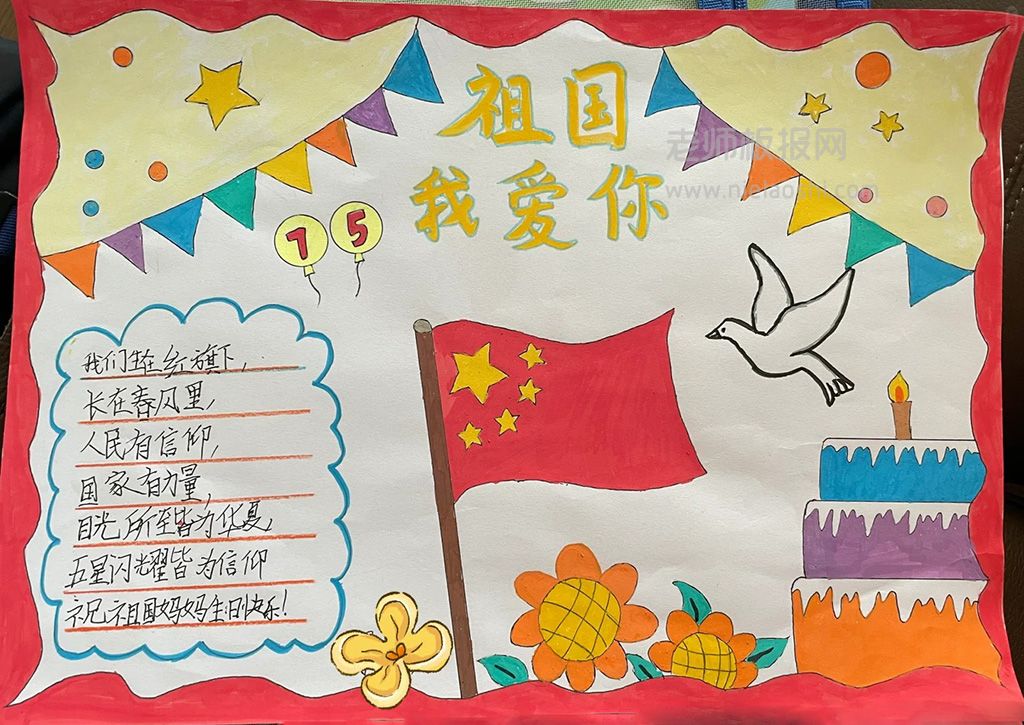 祖国
我爱你
老师板报网
75
我们生在红旗下,
长在春风里,
人民有信仰,
国家有力量,
目光所至皆为华夏,
五星闪耀皆为信仰
祝祖国妈妈生日快乐!